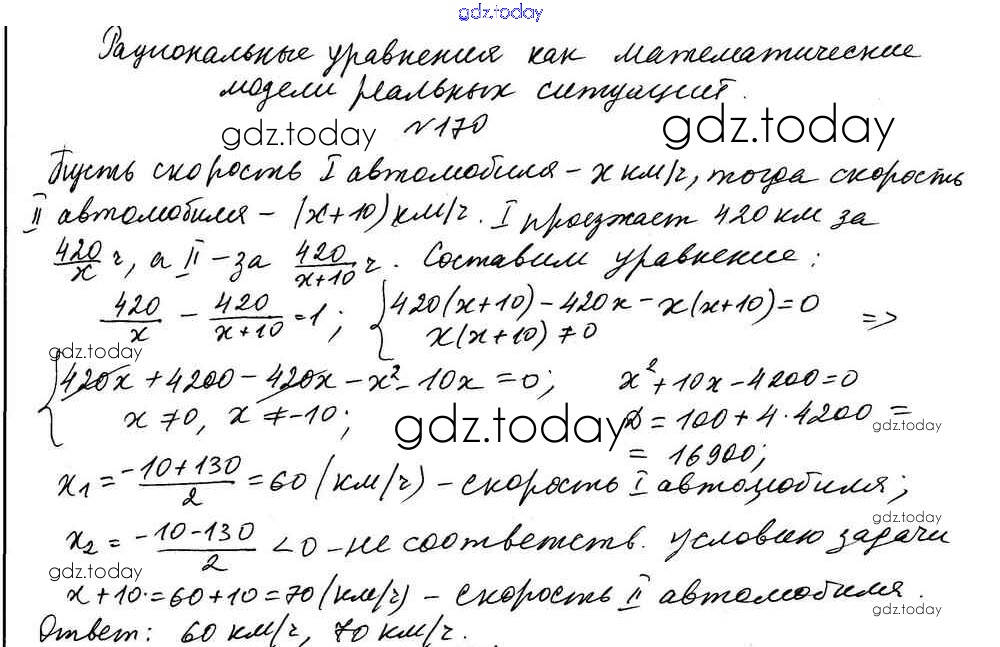 gdz.today
Рациональные уравнения как математические
модели реальных ситуаций.
gdz.today №170 gdz.today
Пусть скорость I автомобиля – x км/ч, тогда скорость
II автомобиля – (x+10) км/ч. I проезжает 420 км за
420/x ч, а II – за 420/(x+10) ч. Составим уравнение:
420/x – 420/(x+10) = 1; { 420(x+10) – 420x – x(x+10) = 0
x(x+10) ≠ 0 =>
gdz.today
{ 420x + 4200 – 420x – x² – 10x = 0; x² + 10x – 4200 = 0
x ≠ 0, x ≠ –10; gdz.today D = 100 + 4·4200 =
gdz.today
= 16900;
x₁ = (–10+130)/2 = 60 (км/ч) – скорость I автомобиля;
gdz.today
x₂ = (–10–130)/2 < 0 – не соответств. условию задачи
gdz.today
x + 10 = 60 + 10 = 70 (км/ч) – скорость II автомобиля.
gdz.today
Ответ: 60 км/ч, 70 км/ч.